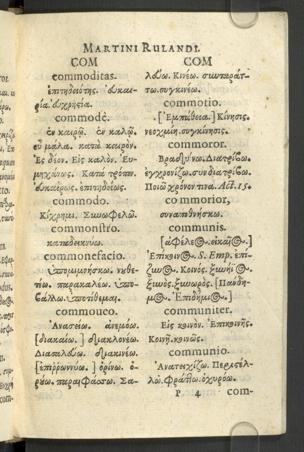 MARTINI RULANDI.
COM
commoditas.
ἐπιτηδειότης. εὐκαι-
ρία. εὐχρηστία.
commodè.
ἐν καιρῷ. ἐν καλῷ.
εὖ μάλα. κατὰ καιρόν.
Ἐς δέον. Εἰς καλόν. Εὐ-
μηχάνως. Κατὰ τρόπον.
εὐκαίρως. ἐπιτηδείως.
commodo.
Κίχρημι. Συνωφελῶ.
commonstro.
καταδεικνύω.
commonefacio.
ὑπομιμνήσκω. νουθε-
τέω. παρακαλέω. ὑπο-
βάλλω. ὑποτίθεμαι.
commoueo.
Ἀνασείω. ἀνεμόω.
Διασαλεύω.
ὀρίνω. ὀ-
COM
λεύω. Κινέω. συνταράτ-
τω. συγκινέω.
commotio.
[Ἐμπάθεια.] Κίνησις.
νεοχμίη. συγκίνησις.
commoror.
Βραδύνω. Διατρίβω.
ἐγχρονίζω. συνδιατρίβω.
Ποιῶ χρόνον τινα. Act. 15.
commorior,
συναποθνήσκω.
communis.
Ἐπίκοινος. S. Emp. ἐπί-
Κοινός.
ξυνός. ξύνωρος. [Πάνδη-
μος. Ἐπιδήμιος.]
communiter.
Εἰς κοινόν. Ἐπικοινῆς.
Κοινῇ. κοινῶς.
communio.
Ἀνατειχίζω. Περιστέλ-
λω. Φράττω. ὀχυρόω.
P 4 com-